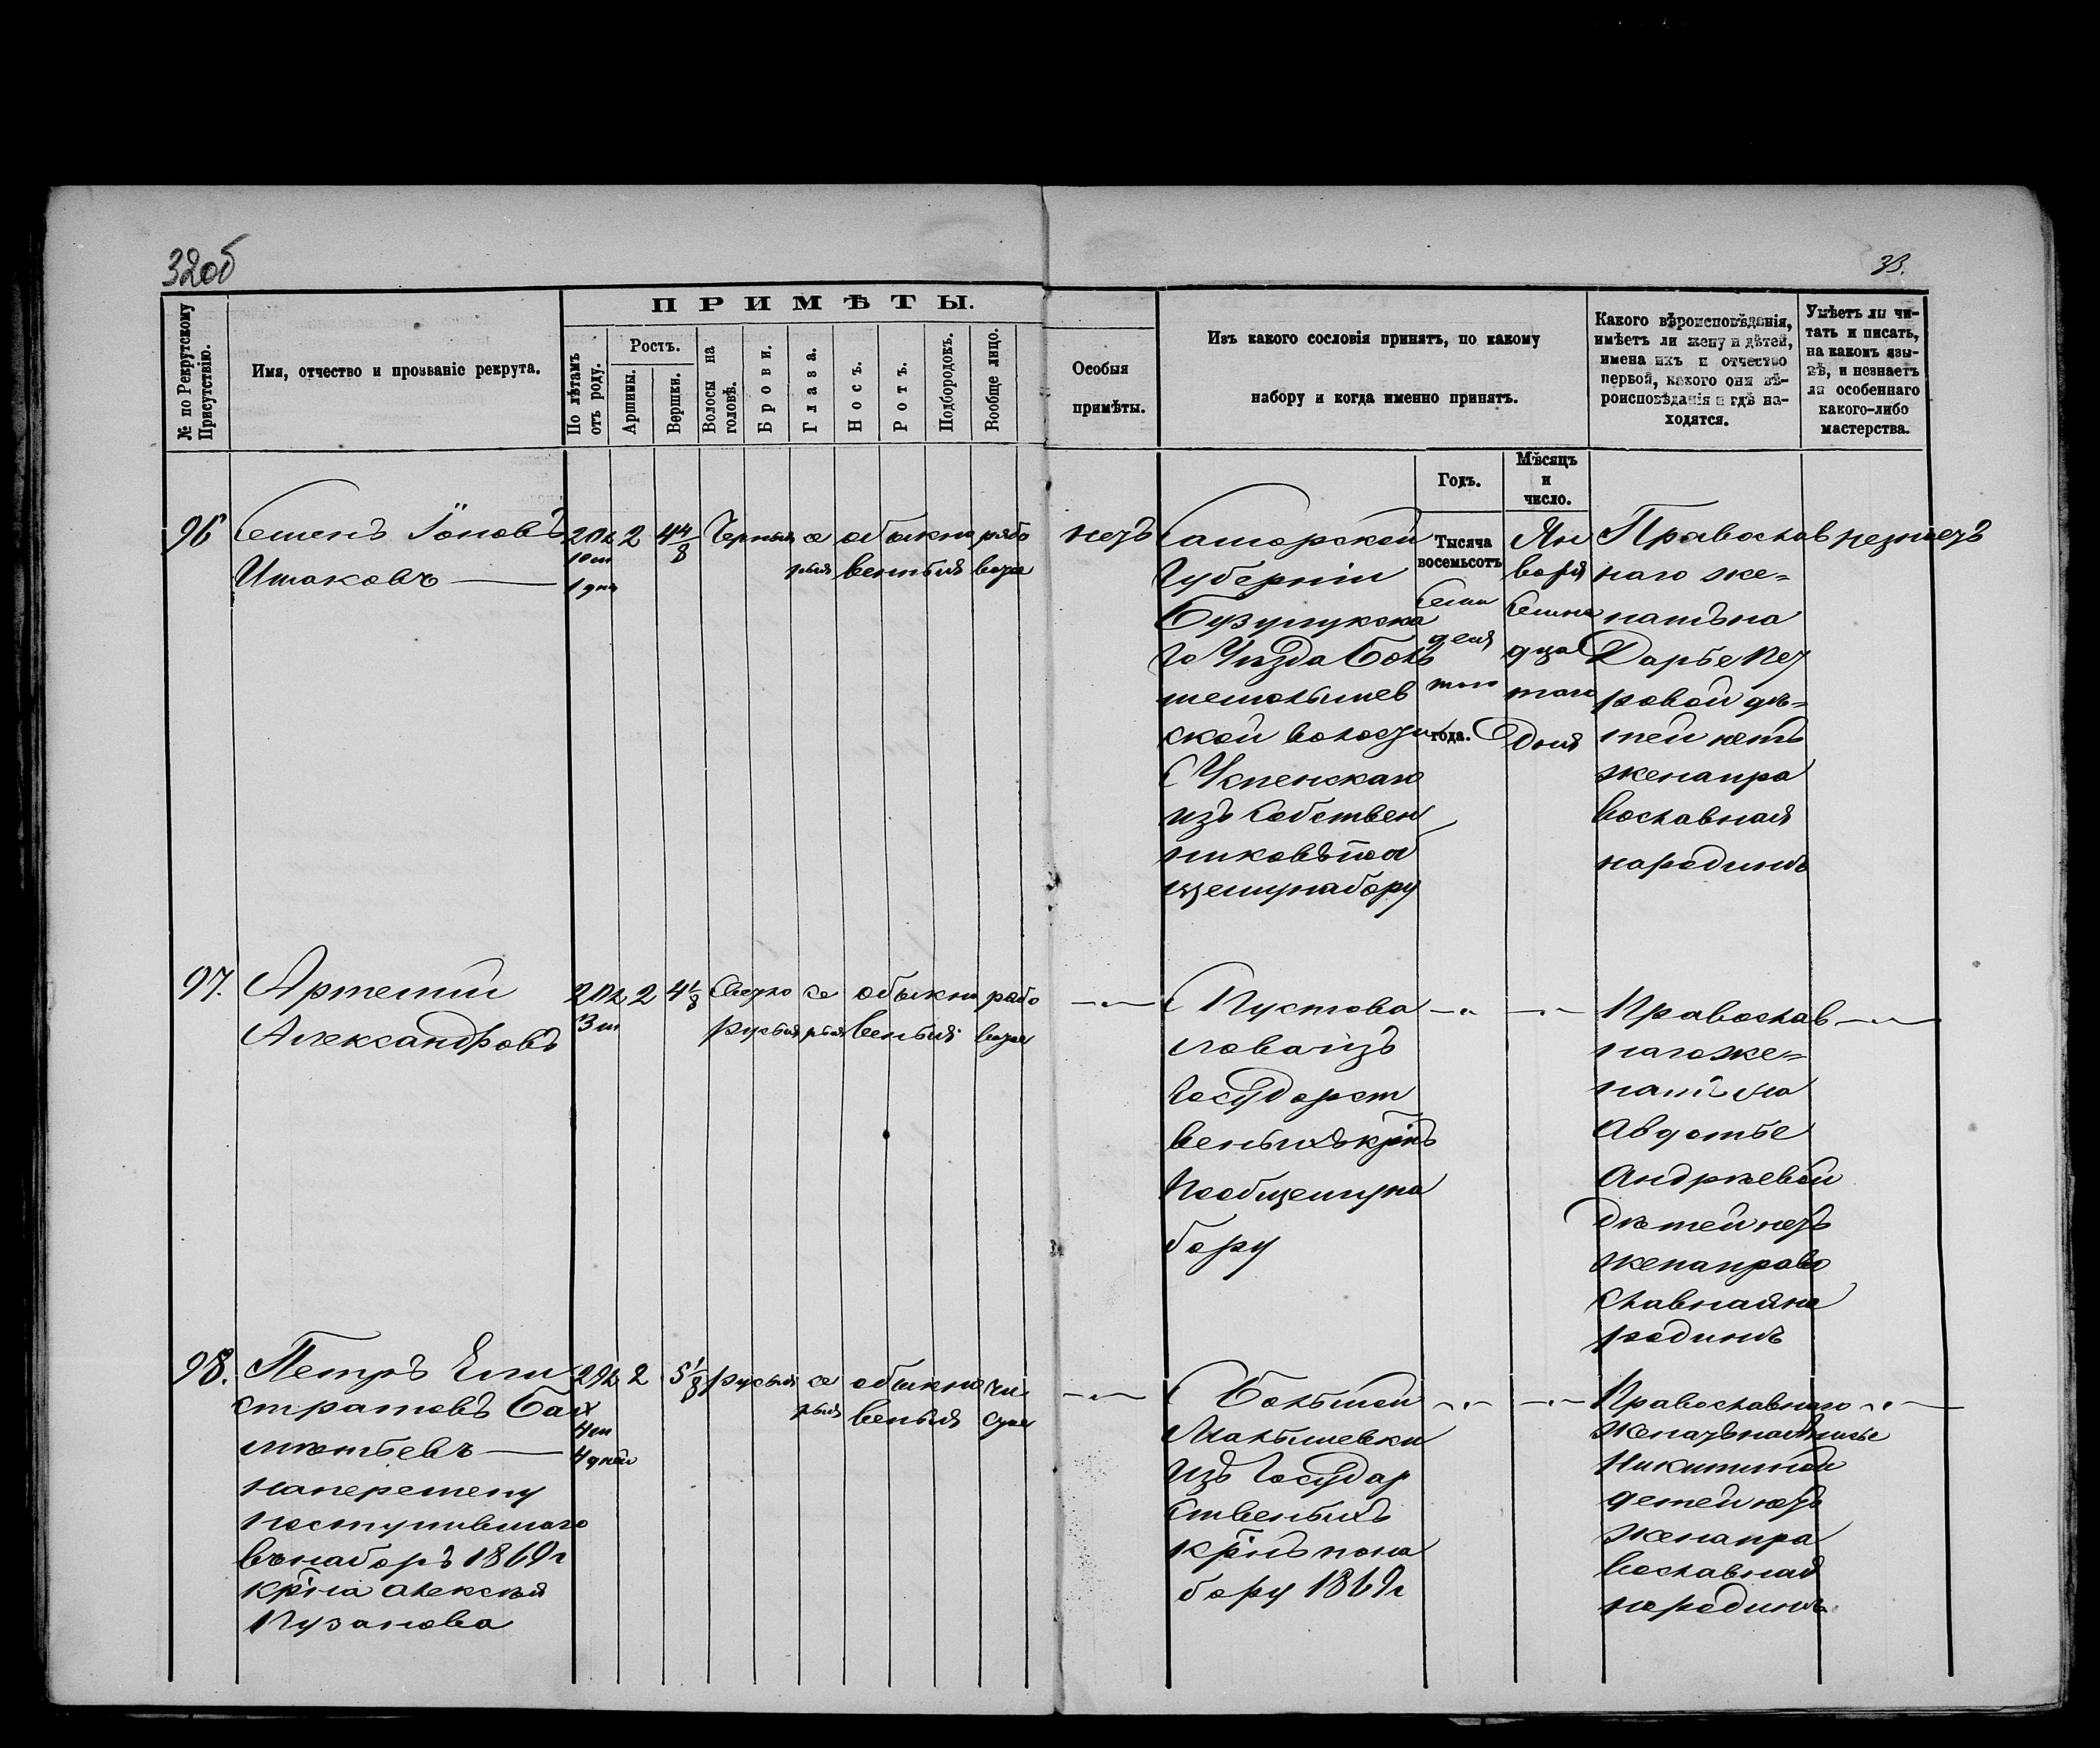 32об
33.
№ по Рекрутскому Присутствію.
Имя, отчество и прозваніе рекрута.
ПРИМѢТЫ.
По лѣтамъ отъ роду.
Ростъ.
Аршины.
Вершки.
Волосы на головѣ.
Брови.
Глаза.
Носъ.
Ротъ.
Подбородокъ.
Вообще лицо.
Особыя
примѣты.
Изъ какого сословія принятъ, по какому
набору и когда именно принятъ.
Годъ.
Мѣсяцъ
и
число.
Какого вѣроисповѣданія,
имѣетъ ли жену и дѣтей,
имена ихъ и отчество
первой, какого они вѣ-
роисповѣданія и гдѣ на-
ходятся.
Умѣетъ ли чи-
тать и писать,
на какомъ язы-
кѣ, и незнаетъ
ли особеннаго
какого-либо
мастерства.
96 Семенъ Іоновъ
Ишаковъ
10 м
1 дня
2
4 4/8
Черныя
се
рыя
обыкно
венныя
рябо
ватое
нетъ
Самарской
Губерніи
Бузулукска
го Уѣзда Боль
шемалышев
ской волости
С Успенскаго
изъ собствен
никовъ пооб
щему набору
Тысяча
восемьсотъ
Семи
деся
того
года.
Ян
варя
Семна
дца
таго
Дня
Православ
наго же=
натъ на
Дарье Пет
ровой дѣ=
тей нетъ
жена пра
вославная
народинѣ
незнаетъ
97. Артемій
Александровъ
3 м
2
4 1/8
Светло
русыя
се
рыя
обыкно
веныя
рябо
ватое
С Пустова
лова изъ
Государст
веныхъ крнъ
Пообщему на
бору
Православ
наго же=
натъ на
Авдотье
Андрѣевой
Дѣтей нетъ
жена право
славная на
родинѣ
98. Петръ Ели
стратовъ Бах
мѣтьевъ
на перемену
поступившаго
въ наборъ 1869 г
крна Алексѣя
Пузанова
4 м
4 дней
2
5 1/8
русыя
се
рыя
обыкно
веныя
чи
стое
С Большой
Малышевки
Изъ Государ
ственыхъ
крнъ по на
бору 1869 г
Православнаго
Женатъ на
Никитиной
детей нетъ
жена пра
вославная
народинѣ